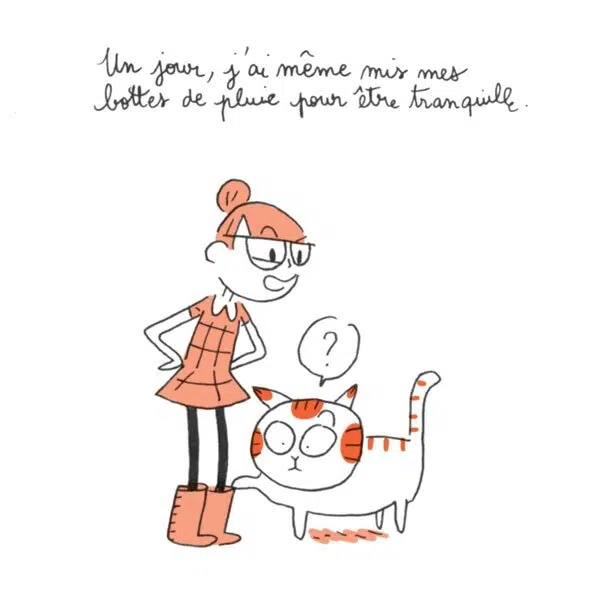 Un jour, j'ai même mis mes
bottes de pluie pour être tranquille.
?